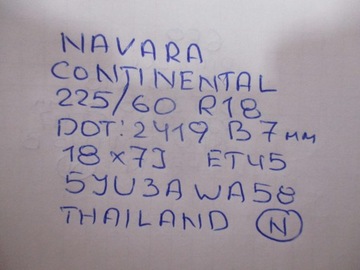 NAVARA
CONTINENTAL
225/60 R18
DOT: 2419 B 7 мм
18 x 7J ET45
5YU3A WA58
THAILAND N